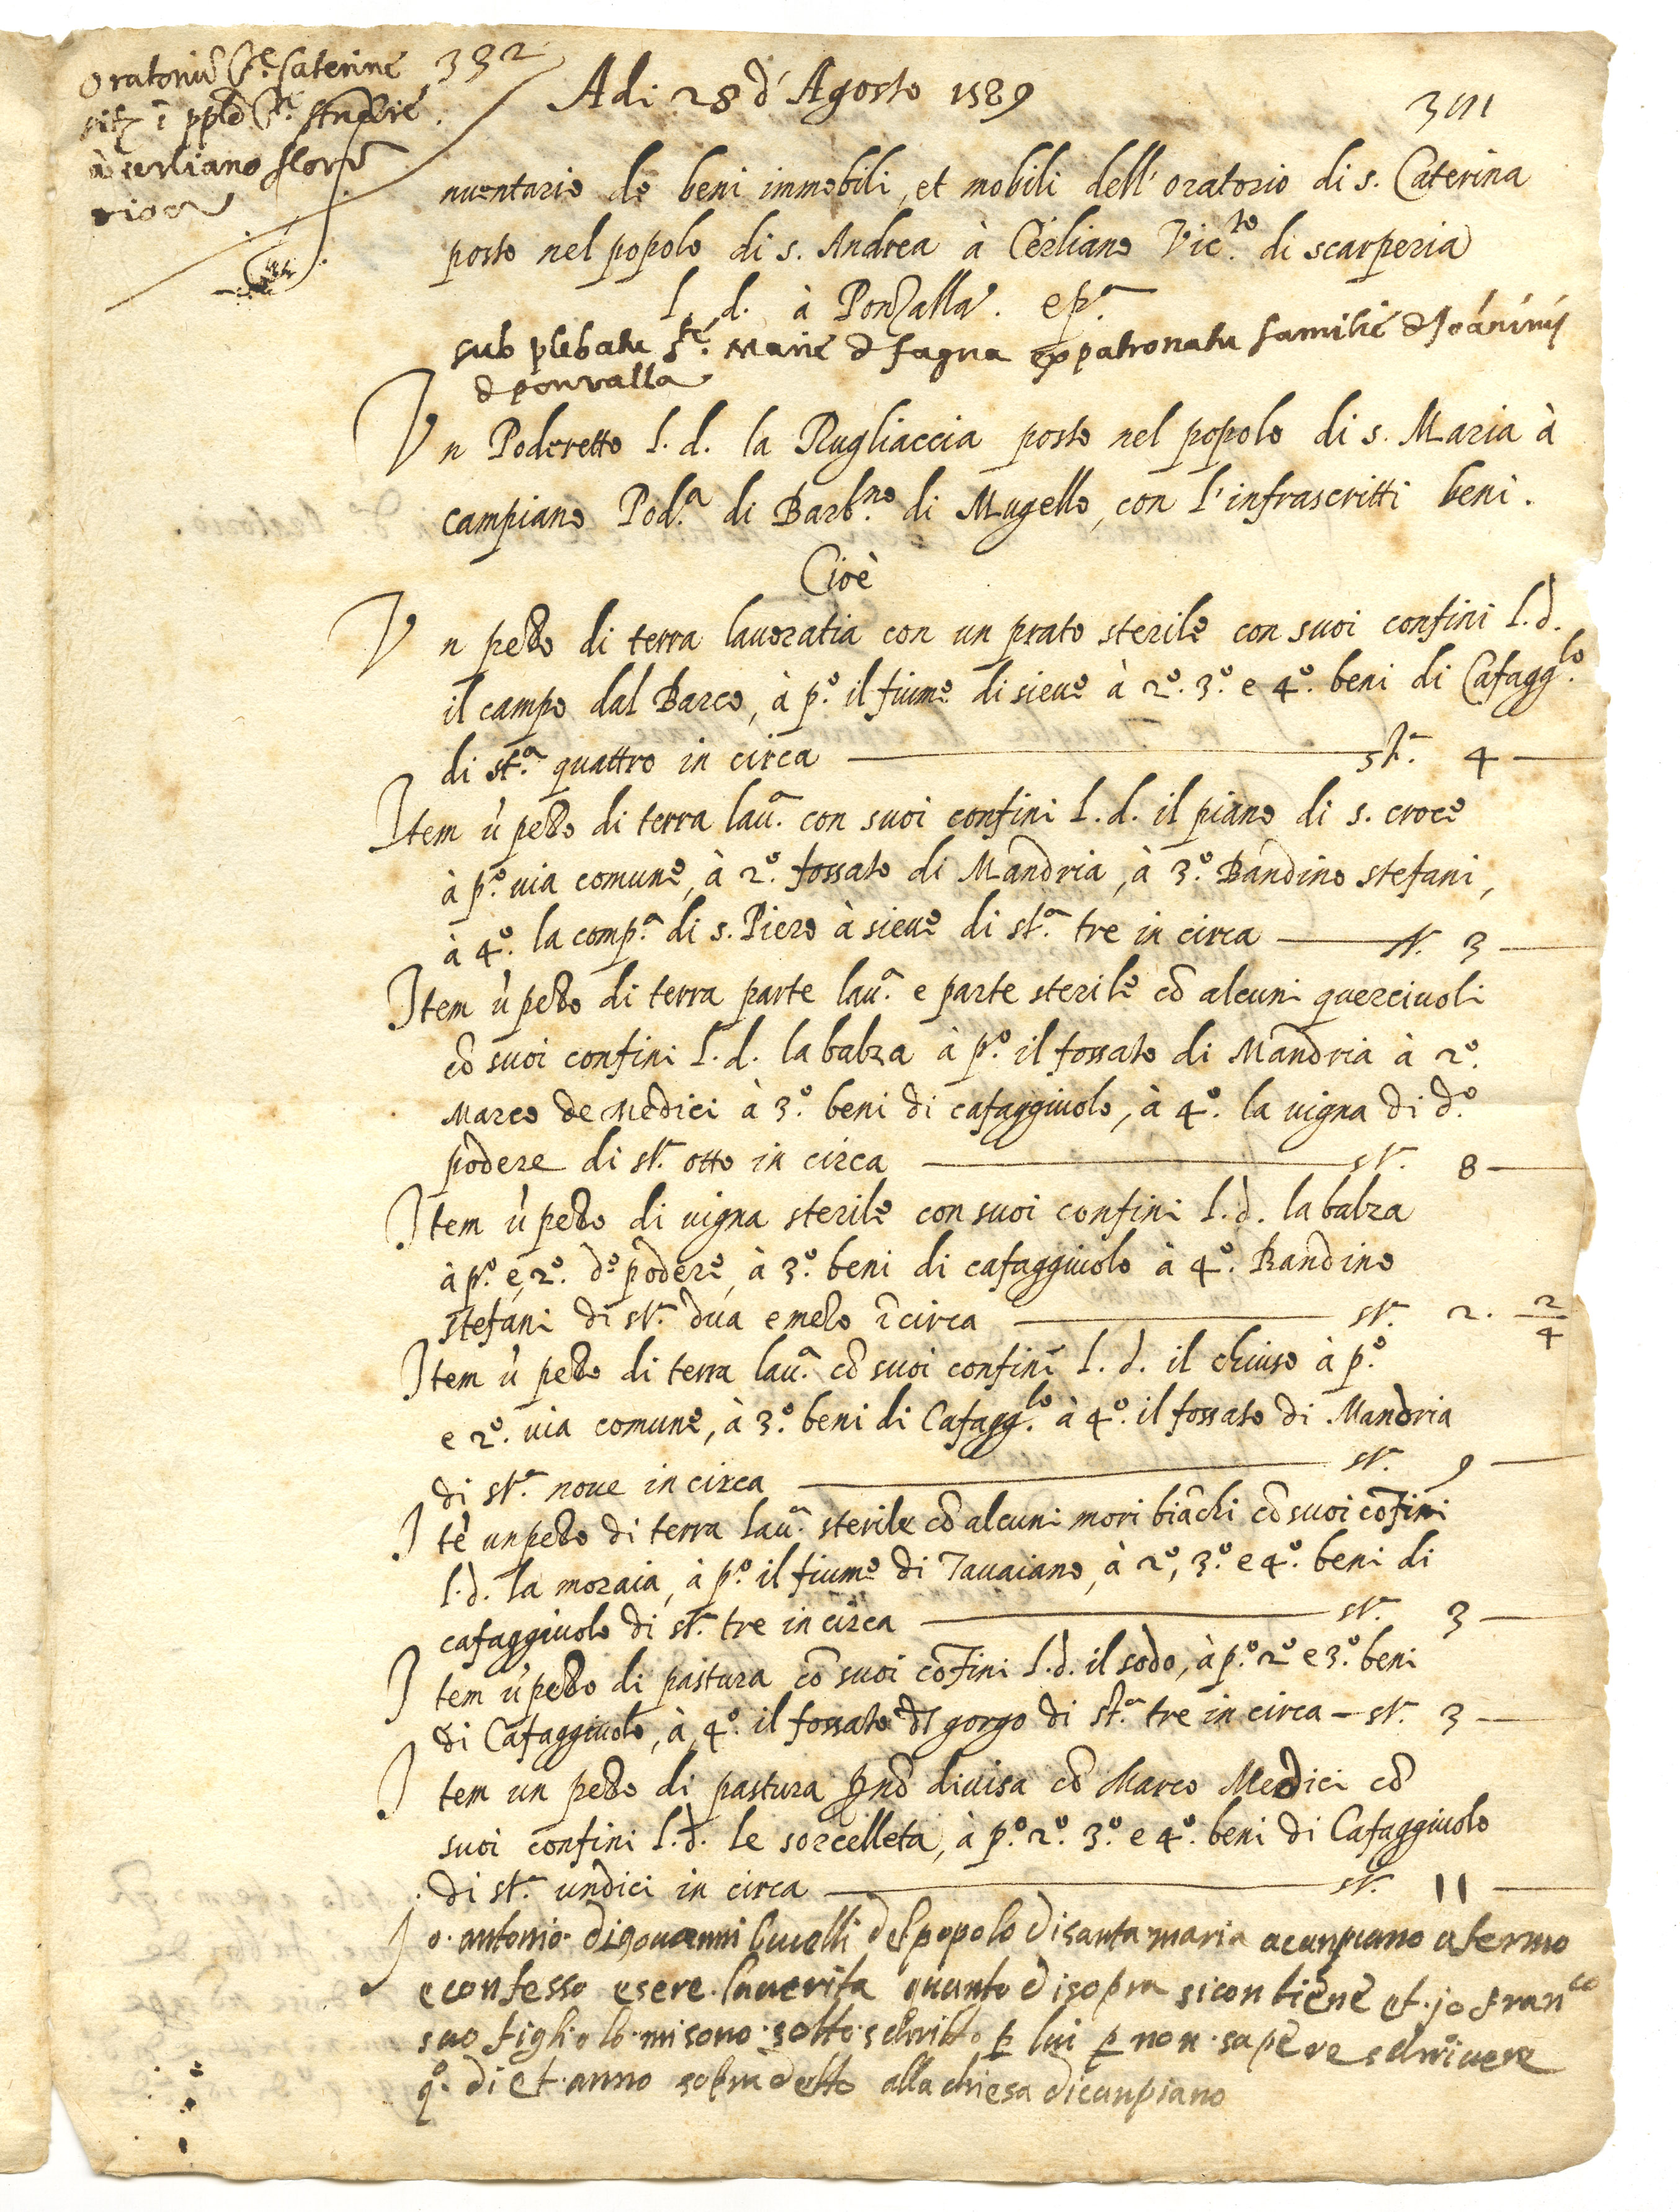 Oratoriũ S.te Caterine 332
sitũ ĩ pplo S.ti Andree
à cerliano floren
Adi 28 d'Agosto 1589
nuentario de beni immobili, et mobili dell'oratorio di s. Caterina
posto nel popolo di s. Andrea à Cerliano Vic.to di scarperia
l. d. à Ponzalla. e p.a
sub plebatu S.te Marie d fagna patronatu familie d Joánínij
d ponzalla
Vn Poderetto l. d. la Rugliaccia posto nel popolo di s. Maria à
campiano Pod.a di Barb.no di Mugello, con l'infrascritti beni.
Cioè
Vn pezzo di terra lauoratia con un prato sterile con suoi confini l. d.
il campo dal Barco, à p.o il fiume di sieue à 2.o 3.o e 4.o beni di Cafagg.lo
di st.a quattro in circa st.a 4
Item ũ pezzo di terra lau.a con suoi confini l. d. il piano di s. croce
à p.o uia comune, à 2.o fossato di Mandria, à 3.o Bandino stefani,
à 4.o la comp.a di s. Piero à sieue di st.a tre in circa st. 3
Item ũ pezzo di terra parte lau.a e parte sterile cõ alcuni querciuoli
cõ suoi confini l. d. la balza à p.o il fossato di Mandria à 2.o
Marco de Medici à 3.o beni di cafaggiuolo, à 4.o la uigna di d.o
podere di st. otto in circa st. 8
Item ũ pezzo di uigna sterile con suoi confini l. d. la balza
à p.o e 2.o d.o podere, à 3.o beni di cafaggiuolo à 4.o Bandino
stefani di st. dua e mezo ĩ circa st. 2. 2/4
Item ũ pezzo di terra lau.a cõ suoi confini l. d. il chiuso à p.o
e 2.o uia comune, à 3.o beni di Cafagg.lo à 4.o il fossato di Mandria
di st.a noue in circa st. 9
Itẽ un pezzo di terra lau.a sterile cõ alcuni mori biãchi cõ suoi cõfini
l. d. la moraia, à p.o il fiume di Tauaiano, à 2.o, 3.o e 4.o beni di
cafaggiuolo di st. tre in circa st. 3
Item ũ pezzo di pastura cõ suoi cõfini l. d. il sodo, à p.o 2.o e 3.o beni
di Cafaggiuolo, à 4.o il fossato dl gorgo di st.a tre in circa - st. 3
Item un pezzo di pastura ꝑ nõ diuisa cõ Marco Medici cõ
suoi confini l. d. le sorcelleta, à p.o 2.o 3.o e 4.o beni di Cafaggiuolo
di st.a undici in circa st. 11
Io antonio di gouanni del popolo di santa maria a canpiano afermo
e confesso esere la uerita quanto di sopra si contiene et jo fran.co
suo figliolo mi sono sotto schritto ꝑ lui ꝑ non sapere schriuere
q.o di et anno sopra detto alla chiesa di canpiano